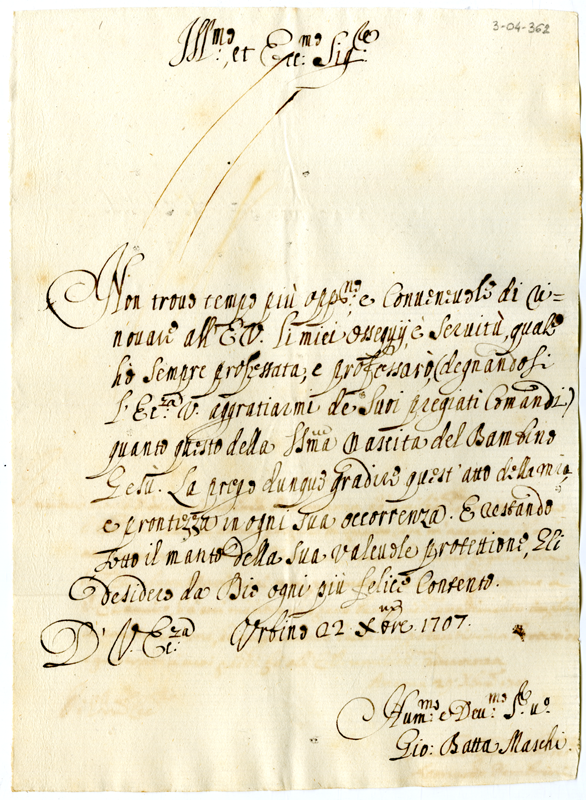 3-04-362
Ill.mo et Ecc.mo Sig.re
Non trovo tempo più opp.no e Convenevole di ri=
novare all'E.V. li miei ossequij e servitù, quale
hò sempre professata, e professarò, (degnandosi
l'Ecc.za V. aggratiarmi de Suoi pregiati Comandi)
quanto questo della SS.ma Nascita del Bambino
Gesù. La prego dunque gradire quest'atto della mia
e prontezza in ogni sua occorrenza. E restando
sotto il manto della sua valevole protettione, Gli
desidero da Dio ogni più felice Contento.
D. V. Ecc.za Urbino 22 Xbre 1707.
Hum.mo e Dev.mo S.re V.o
Gio: Batta Maschi.